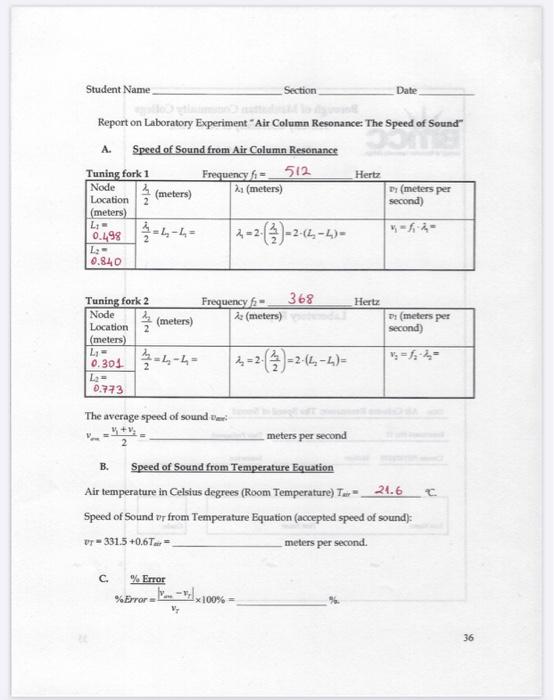 Student Name Section Date
Report on Laboratory Experiment "Air Column Resonance: The Speed of Sound"
A. Speed of Sound from Air Column Resonance
Tuning fork 1 Frequency f₁ = 512 Hertz
Node Location (meters) λ₁/2 (meters) λ₁ (meters) v₁ (meters per second)
L₁ = 0.498 λ₁/2 = L₂ - L₁ = λ₁ = 2·(λ₁/2) = 2·(L₂ - L₁) = v₁ = f₁·λ₁ =
L₂ = 0.840
Tuning fork 2 Frequency f₂ = 368 Hertz
Node Location (meters) λ₂/2 (meters) λ₂ (meters) (meters per second)
L₁ = 0.301 λ₂/2 = L₂ - L₁ = λ₂ = 2·(λ₂/2) = 2·(L₂ - L₁) = v₂ = f₂·λ₂ =
L₂ = 0.773
The average speed of sound vₐᵥₑ:
vₐᵥₑ = (v₁ + v₂)/2 = meters per second
B. Speed of Sound from Temperature Equation
Air temperature in Celsius degrees (Room Temperature) Tair = 21.6 °C
Speed of Sound vT from Temperature Equation (accepted speed of sound):
vT = 331.5 +0.6Tair = meters per second.
C. % Error
%Error = |vₐᵥₑ - vT|/vT ×100% = %.
36